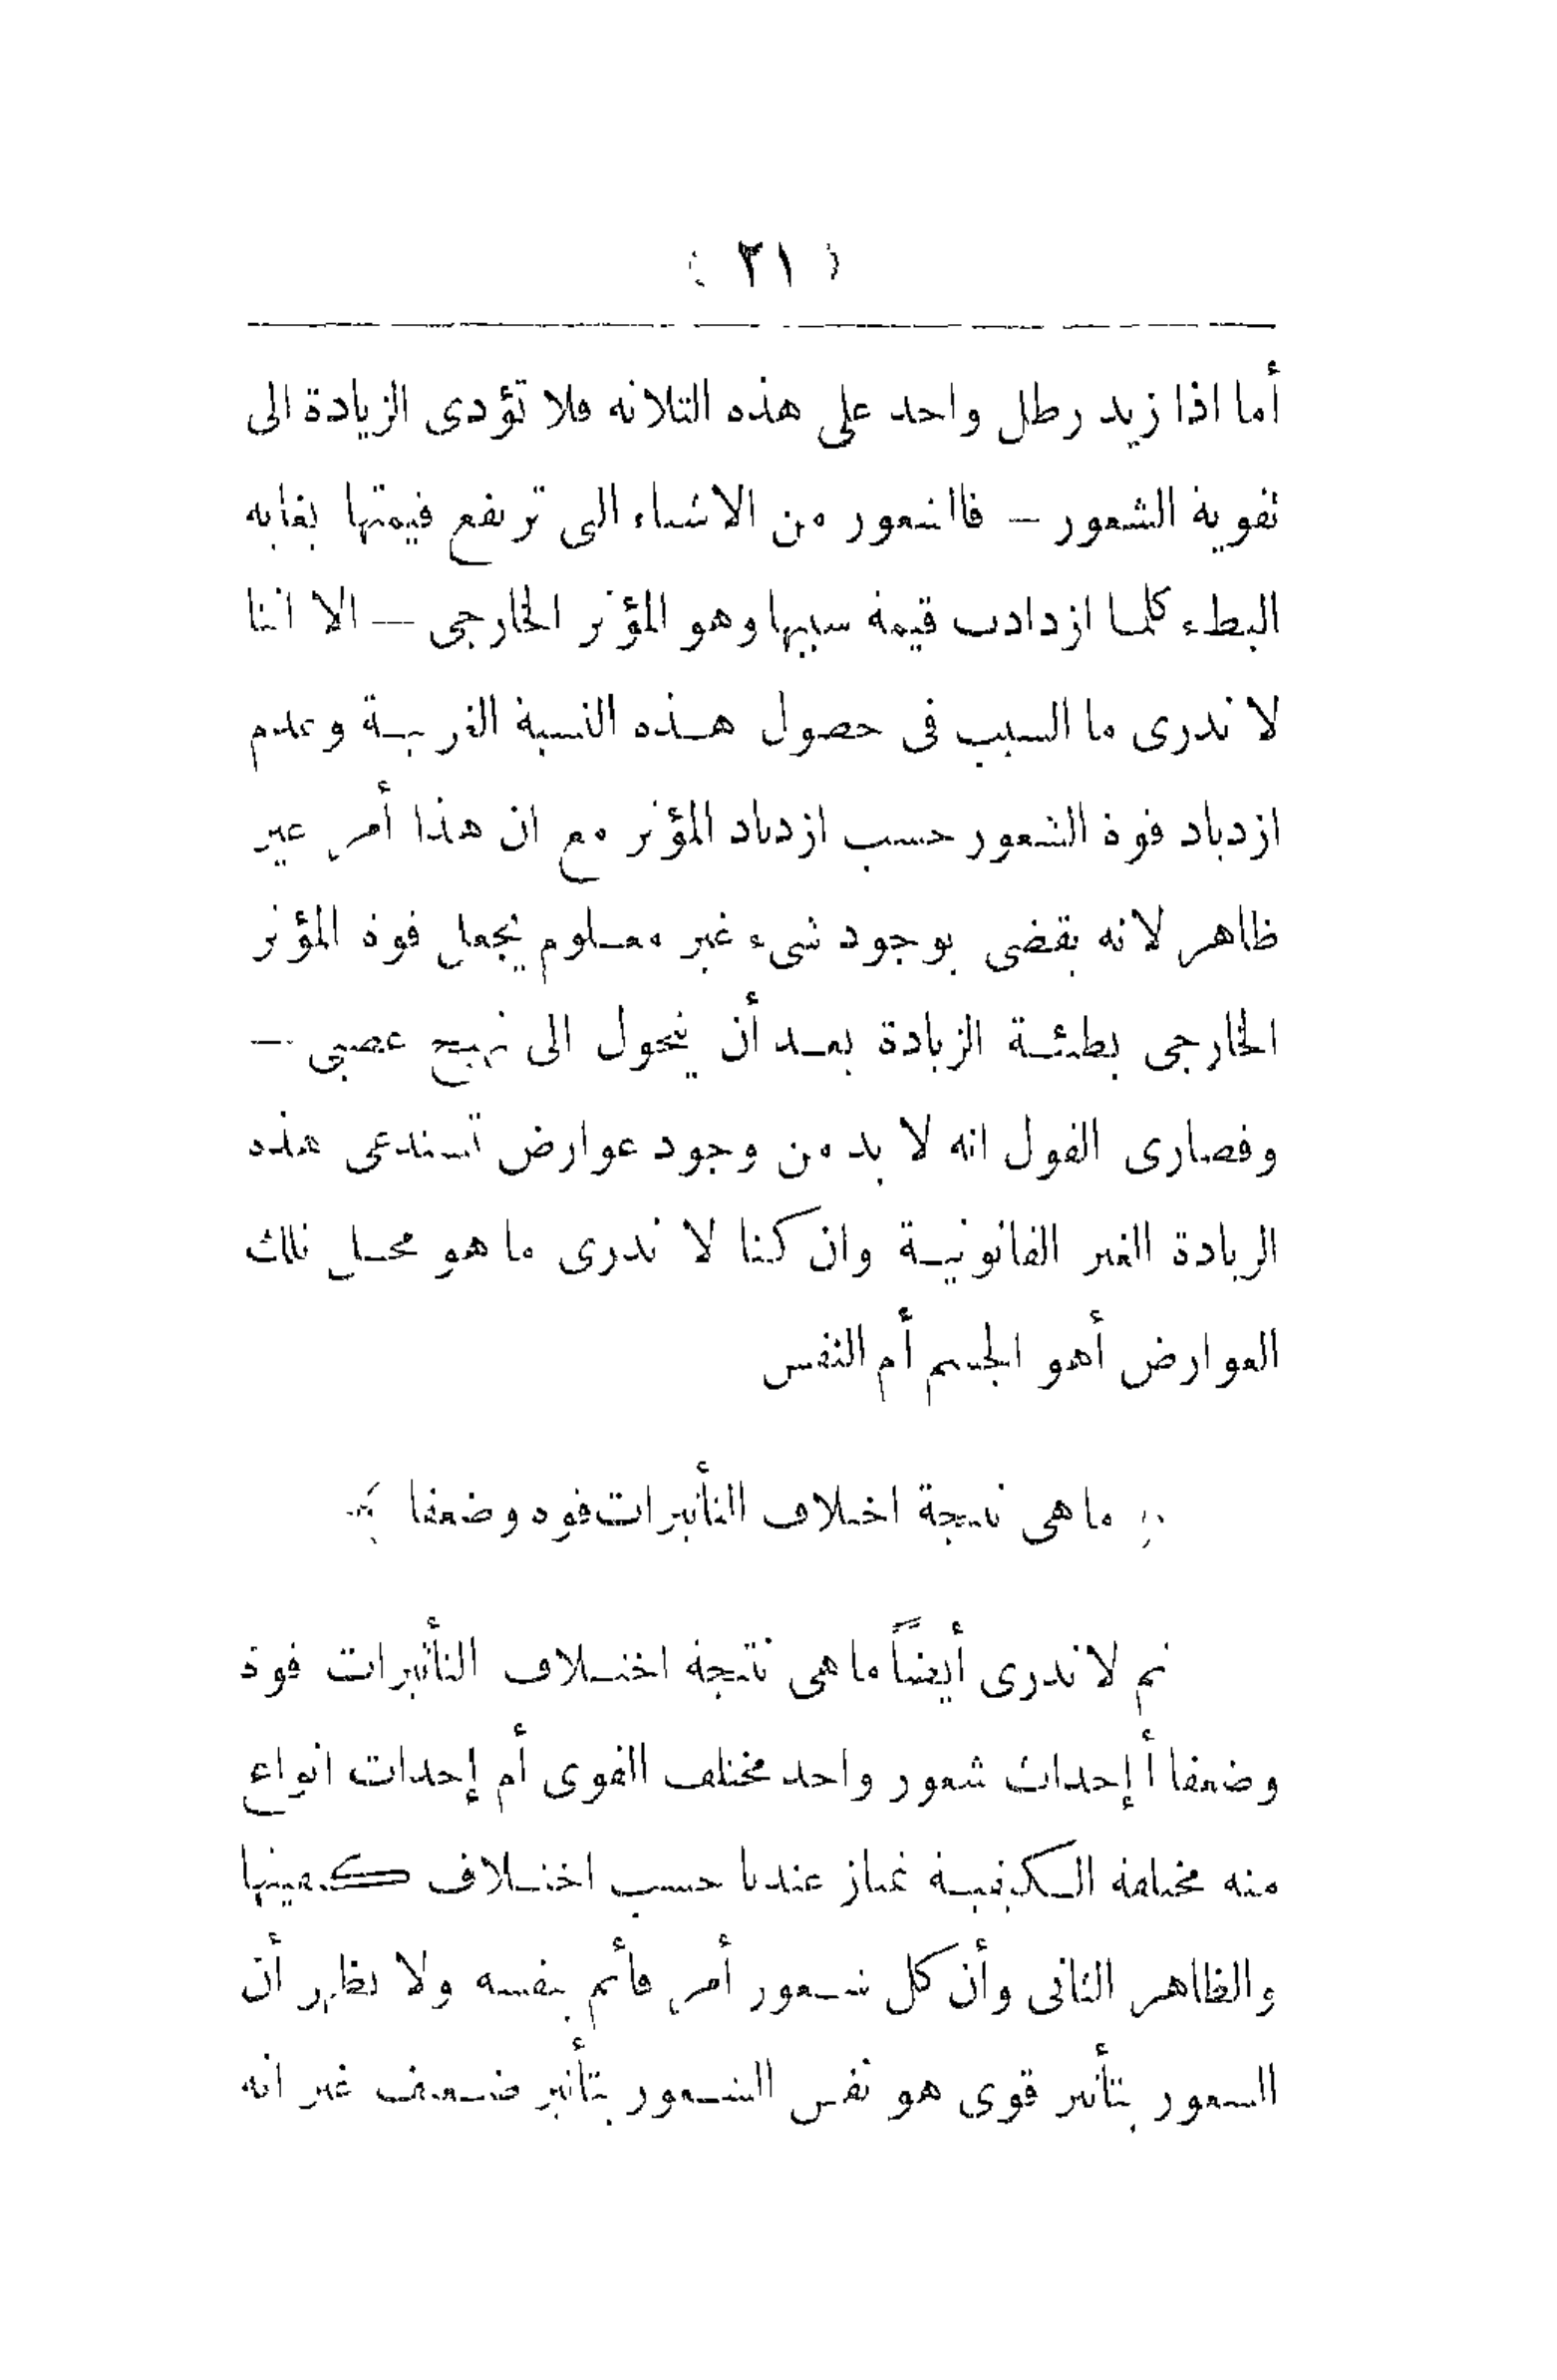 ( ٢١ )
أما اذا زيد رطل واحد على هذه الثلاثه فلا تؤدى الزيادة الى
تقوية الشعور — فالشعور من الاشياء التى ترتفع قيمتها بغاية
البطء كلما ازدادت قيمة سببها وهو المؤثر الخارجى — الا اننا
لا ندرى ما السبب فى حصول هذه النسبة الغريبة وعدم
ازدياد قوة الشعور حسب ازدياد المؤثر مع ان هذا أمر غير
ظاهر لانه يقضى بوجود شىء غير معلوم يجعل قوة المؤثر
الخارجى بطيئة الزيادة بعد أن يتحول الى تهيج عصبى —
وقصارى القول انه لا بد من وجود عوارض تستدعى هذه
الزيادة الغير القانونية وان كنا لا ندرى ما هو محل تلك
العوارض أهو الجسم أم النفس
﴿ ما هى نتيجة اختلاف التأثيرات قوة وضعفا ﴾
ثم لا ندرى أيضاً ما هى نتيجة اختلاف التأثيرات قوة
وضعفا أ إحداث شعور واحد مختلف القوى أم إحداث انواع
منه مختلفة الكيفية تمتاز عندنا حسب اختلاف كميتها
والظاهر الثانى وأن كل شعور أمر قائم بنفسه ولا نظن أن
الشعور بتأثير قوى هو نفس الشعور بتأثير ضعيف غير انه